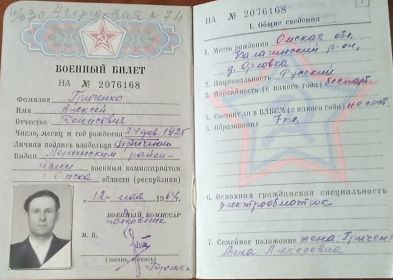 ВОЕННЫЙ БИЛЕТ
НА № 2076168
Фамилия Гриченко
Имя Алексей
Отчество Денисович
Число, месяц и год рождения 1925
Личная подпись владельца
Выдан Ленинским район-
ным военным комиссариатом
г. Омска области (республики)
12 мая 1964
ВОЕННЫЙ КОМИССАР
полковник
М. П.
НА № 2076168
1
I. Общие сведения
1. Место рождения Омская обл,
р-он,
д. Орловка
2. Национальность Русский
3. Партийность (с какого года) беспарт.
4. Состоял ли в ВЛКСМ (с какого года) не сост.
5. Образование 7 кл.
6. Основная гражданская специальность
7. Семейное положение жена Гриченко
Анна Алексеевна